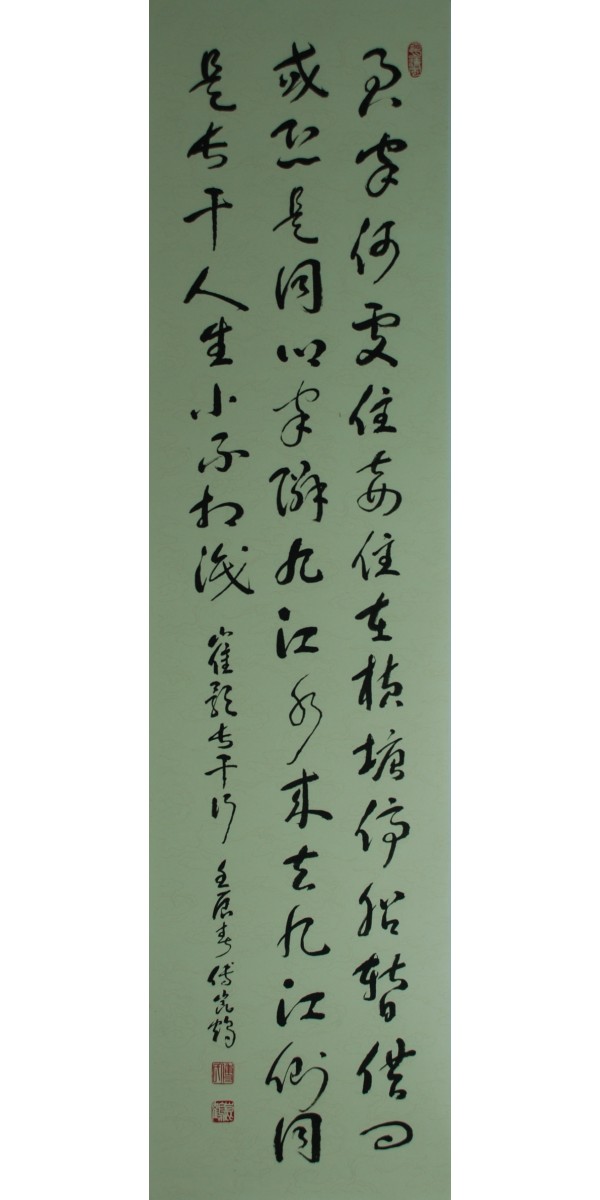 君家何處住妾住在橫塘停船暫借問
或恐是同鄉家臨九江水來去九江側同
是長干人生小不相識 崔顥長干行 壬辰春傅